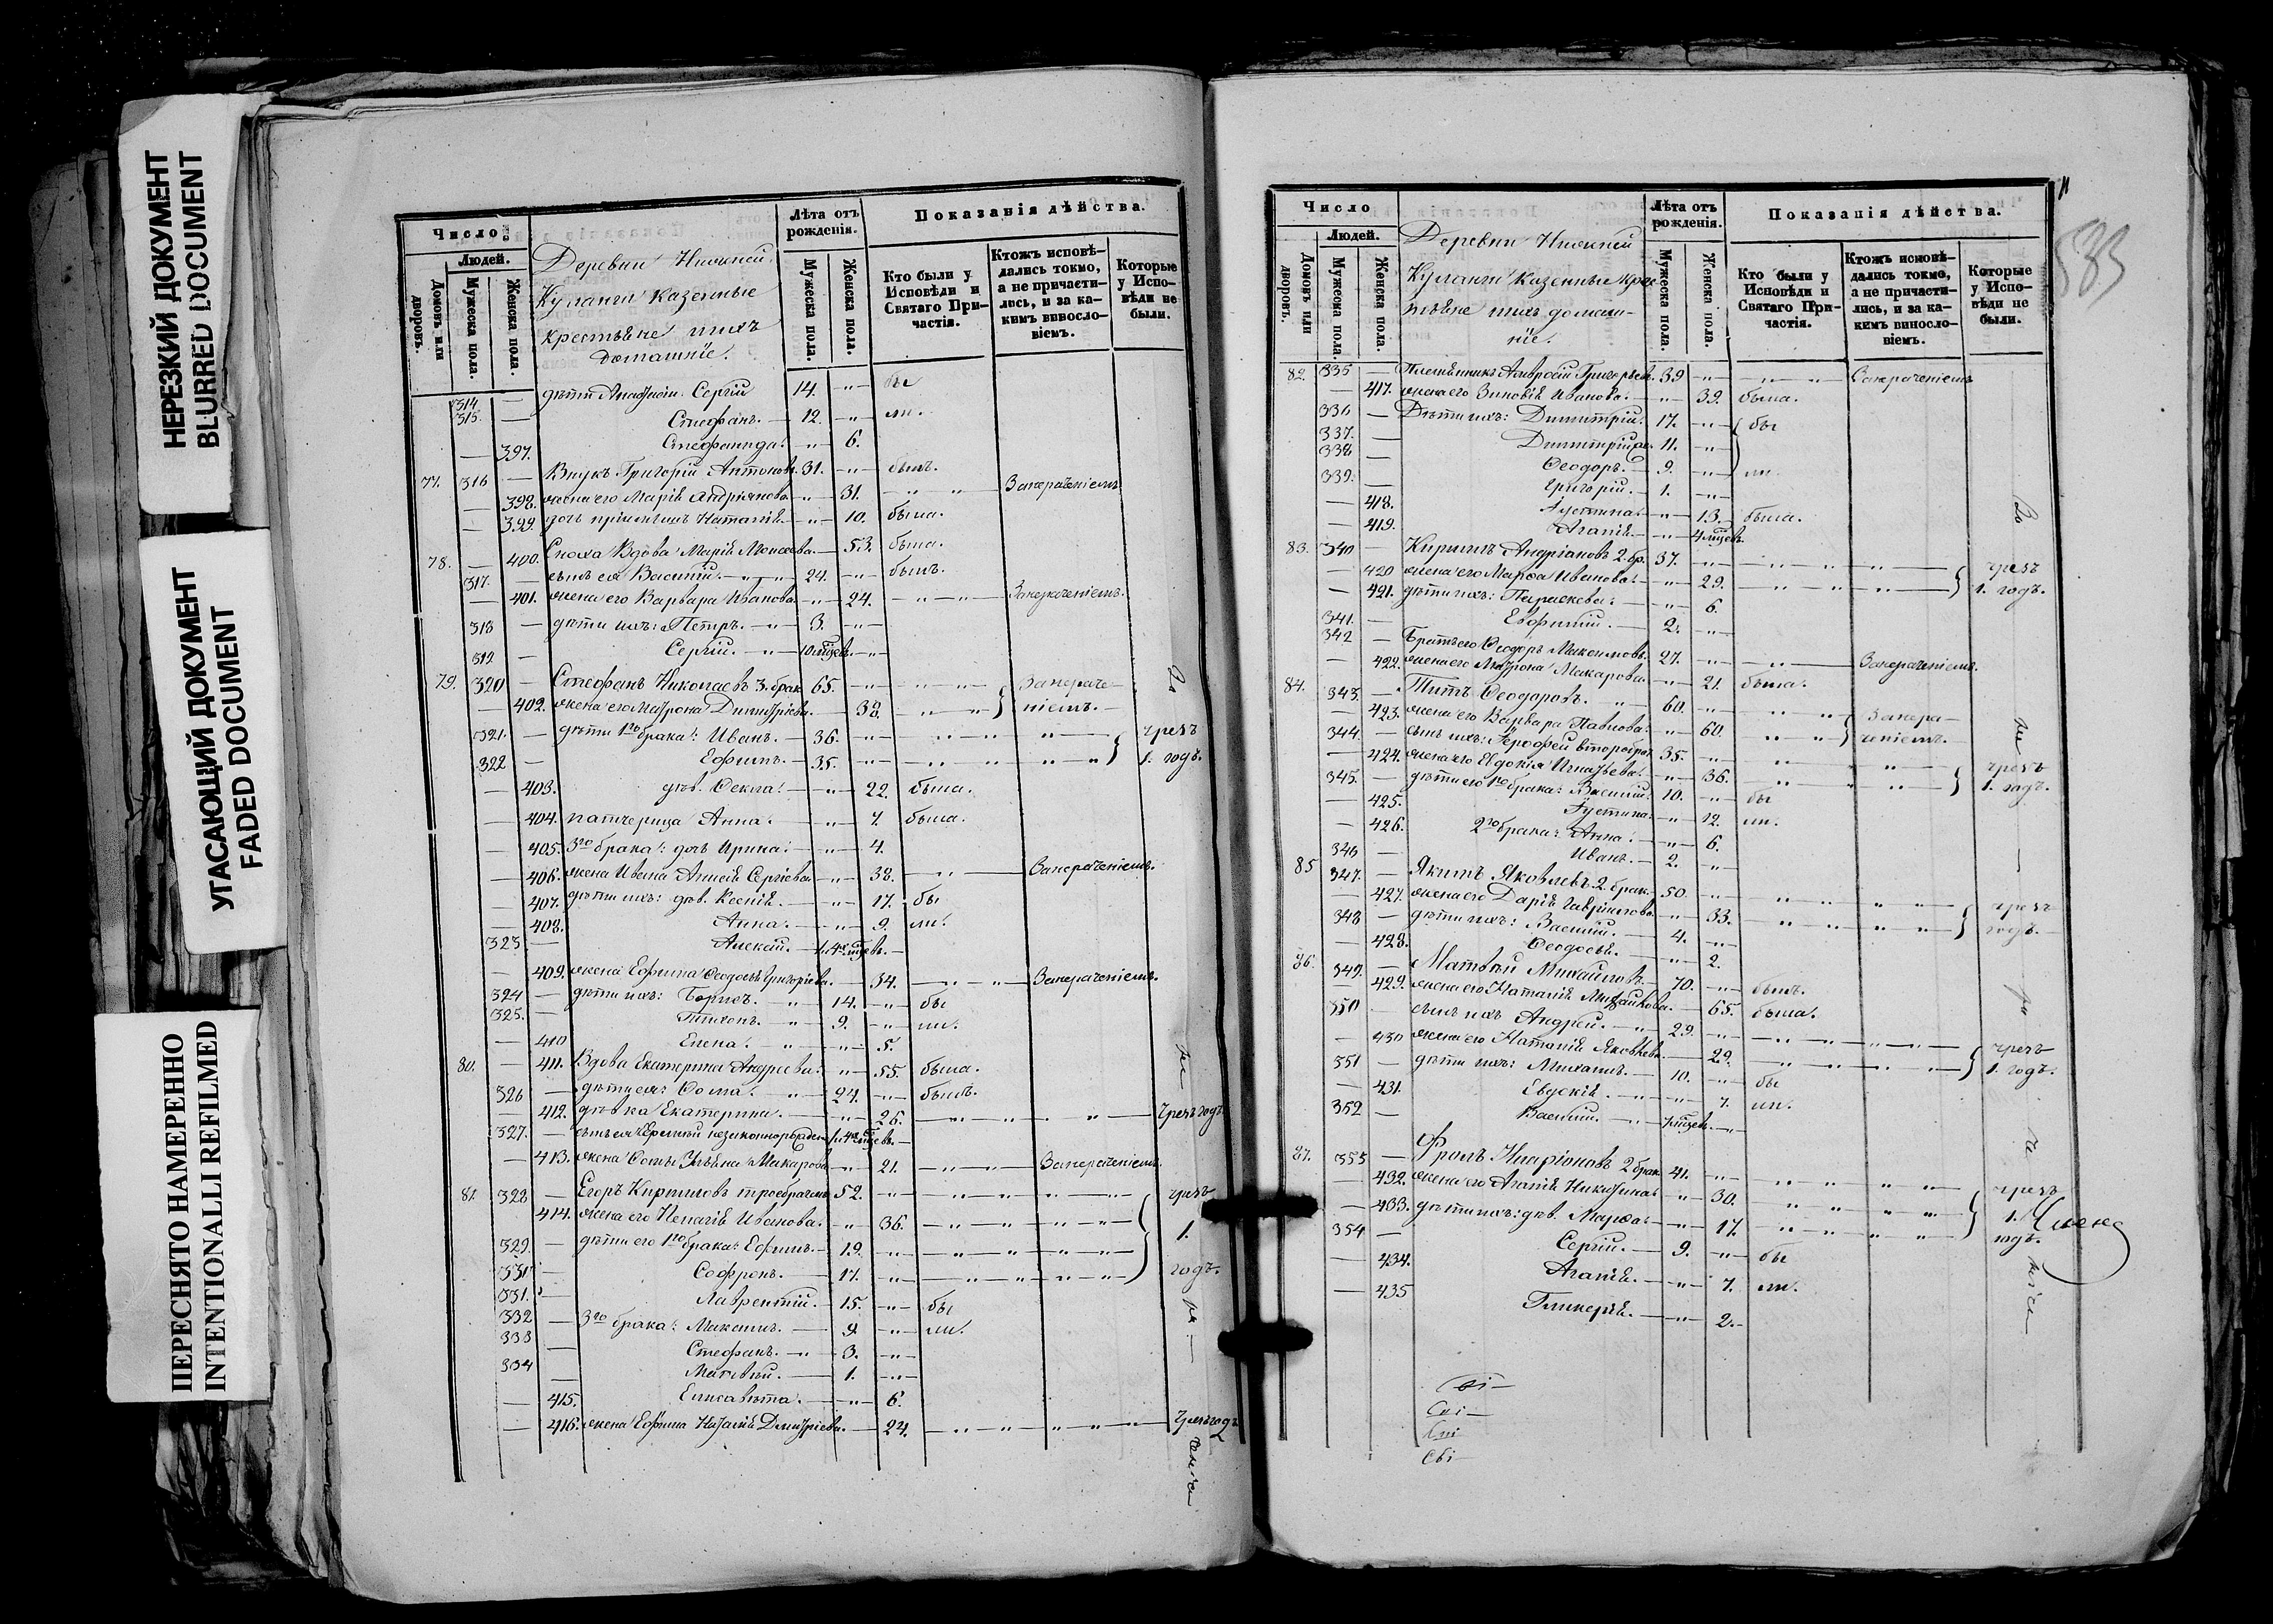 НЕРЕЗКИЙ ДОКУМЕНТ
BLURRED DOCUMENT
УГАСАЮЩИЙ ДОКУМЕНТ
FADED DOCUMENT
ПЕРЕСНЯТО НАМЕРЕННО
INTENTIONALLI REFILMED
Число
Людей.
Домовъ или дворовъ.
Мужеска пола.
Женска пола.
Деревни Нижней
Куланги казенные
крестьяне и ихъ
домашніе.
Лѣта отъ рожденія.
Мужеска пола.
Женска пола.
Показанія дѣйства.
Кто были у Исповѣди и Святаго Причастія.
Ктожъ исповѣдались токмо, а не причастились, и за какимъ винословіемъ.
Которые у Исповѣди не были.
314. — дѣти Сергій 14. —"— бы
315. — Стефанъ. — 12. —"— ли.
— 397. Стефанида. —"— 6.
77. 316 — Внукъ Григорій Антоновъ. 31. —"— былъ.
— 398. жена его Марія Андріянова —"— 31. —"—"—
— 399. дочь Наталія. —"— 10. была.
78. — 400. Вдова Марія Моисеева. — 53. была.
317. — сынъ ея Василій. —"— 24. —"— былъ.
— 401. жена его Варвара Иванова. —"— 24. —"—
318 — дѣти ихъ: Петръ. —"— 3. —"—
319 — Сергій. —"— 10 мцевъ. —"—
79. 320 — Стефанъ Николаевъ 3. брак. 65. —"—
— 402. жена его Матрона Димитріева. — 38.
321. — дѣти 1го брака: Иванъ. — 36. —"— чрезъ
322 — Ефимъ. — 35. —"— 1. годъ.
— 403. дѣв. Ѳекла. —"— 22. была.
— 404. патчерица Анна. —"— 7. была.
— 405. 3го брака: дочь Ирина. —"— 4.
— 406. жена Ивана Анисія Сергіева —"— 38. —"—
— 407. дѣти ихъ: дѣв. Ксенія. —"— 17. бы
— 408. Анна. —"— 9. ли.
323 — Алексій. —
— 409. жена Ефима Ѳеодосья Григоріева. — 34. —"—
324 — дѣти ихъ: Борисъ. —"— 14. —"— бы
325. — Тихонъ. —"— 9. —"— ли.
— 410 Елена. —"— 5.
80. — 411. Вдова Екатерина Андреева. —"— 55. была.
326 — дѣти ея: Ѳома. —"— 24. —"— былъ.
— 412. дѣвка Екатерина. —"— 26. —"— чрезъ годъ.
327. — сынъ ея незаконнорожден.
— 413. жена Ѳомы Ульяна Макарова —"— 21. —"—
81. 328 — Егоръ Кириловъ троебрачный 52. —"— чрезъ
414. жена его Пелагія Иванова. —"— 36. —"— 1.
329. — дѣти его 1го брака: Ефимъ. — 19. —"—
330 — Софронъ. — 17. —"— годъ.
331. — Лаврентій. — 15. —"— бы
332 — 3го брака: Максимъ. — 9 —"— ли.
333 — Стефанъ. —"— 3. —"—
334 — Матвѣй. — 1. —"—
— 415. Елисавета. —"— 6.
— 416. жена Ефима Наталія Димитріева. — 24. —"— чрезъ годъ
585
Число
Людей.
Домовъ или дворовъ.
Мужеска пола.
Женска пола.
Деревни Нижней
Куланги казенные крес
тьяне и ихъ домаш-
ніе.
Лѣта отъ рожденія.
Мужеска пола.
Женска пола.
Показанія дѣйства.
Кто были у Исповѣди и Святаго Причастія.
Ктожъ исповѣдались токмо, а не причастились, и за какимъ винословіемъ.
Которые у Исповѣди не были.
82. 335 — Племянникъ Амвросій Григорьевъ. 39 —"—
— 417. жена его Зиновія Иванова. —"— 39. была.
336 — Дѣти ихъ: Димитрій. 17. —"— бы
337. — Димитрій 11. —"—
338 — Ѳеодоръ. — 9. —"— ли.
339. — Григорій. — 1. —"—
— 418. Іустина. —"— 13. была.
— 419. Агапія. —"— 4 мцевъ.
83. 340 — Кирилъ Андріановъ 2. бр. 37. —"— чрезъ
— 420 жена его Марѳа Иванова. —"— 29. 1. годъ.
— 421. дѣти ихъ: Параскева. —"— 6.
341. — Евфимій. — 2. —"—
342 — Братъ его Ѳеодоръ Максимовъ. 27. —"—
— 422. жена его Матрона Макарова. —"— 21. была.
84. 343. — Титъ Ѳеодоровъ. —"— 60. —"—
— 423. жена его Варвара Павлова. —"— 60.
344. — сынъ ихъ: Іероѳей второбрач. 35. —"— чрезъ
— 424. жена его Евдокія Игнатьева. —"— 36. 1. годъ.
345. — дѣти его 1го брака: Василій. 10. —"— бы
— 425. Іустина. —"— 12. ли.
— 426. 2го брака: Анна. —"— 6.
346 — Иванъ. — 2. —"—
85 347. — Якимъ Яковлевъ 2. брак. 50. —"— чрезъ
— 427. жена его Дарія Гавріилова. —"— 33. годъ.
348 — дѣти ихъ: Василій. — 4. —"—
— 428. Ѳеодосья. —"— 2.
86. 349. — Матвѣй Михайловъ. — 70. —"— былъ.
— 429. жена его Наталія Михайлова. — 65. была.
350 — сынъ ихъ Андрей. —"— 29. —"— чрезъ
— 430 жена его Наталія Яковлева. — 29. 1. годъ.
351 — дѣти ихъ: Михаилъ. — 10. —"— бы
— 431. Евдокія. —"— 7. ли.
352 — Василій. —"— 7 мцев. —"—
87. 353 — Фролъ Иларіоновъ 2 брак. 41. —"— чрезъ
— 432. жена его Агапія Никитина. —"— 30. 1.
— 433. дѣти ихъ: дѣв. Марѳа. —"— 17. годъ.
354 — Сергій. — 9. —"— бы
— 434. Агапія. —"— 7. ли.
— 435 Гликерія. —"— 2. —